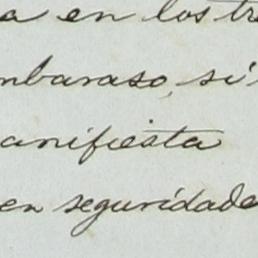 a en los tre
mbaraso, si
anifiesta
en seguridade